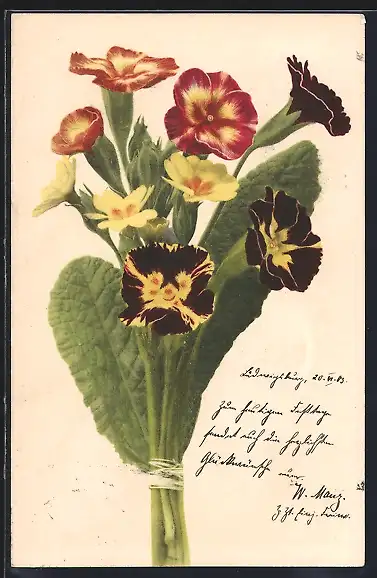 Ludwigsburg, 20. VI. 03.
Zum heutigen Festtage
sendet auch die herzlichsten
Glückwünsche
W. Manz.
z. Zt. Einj.